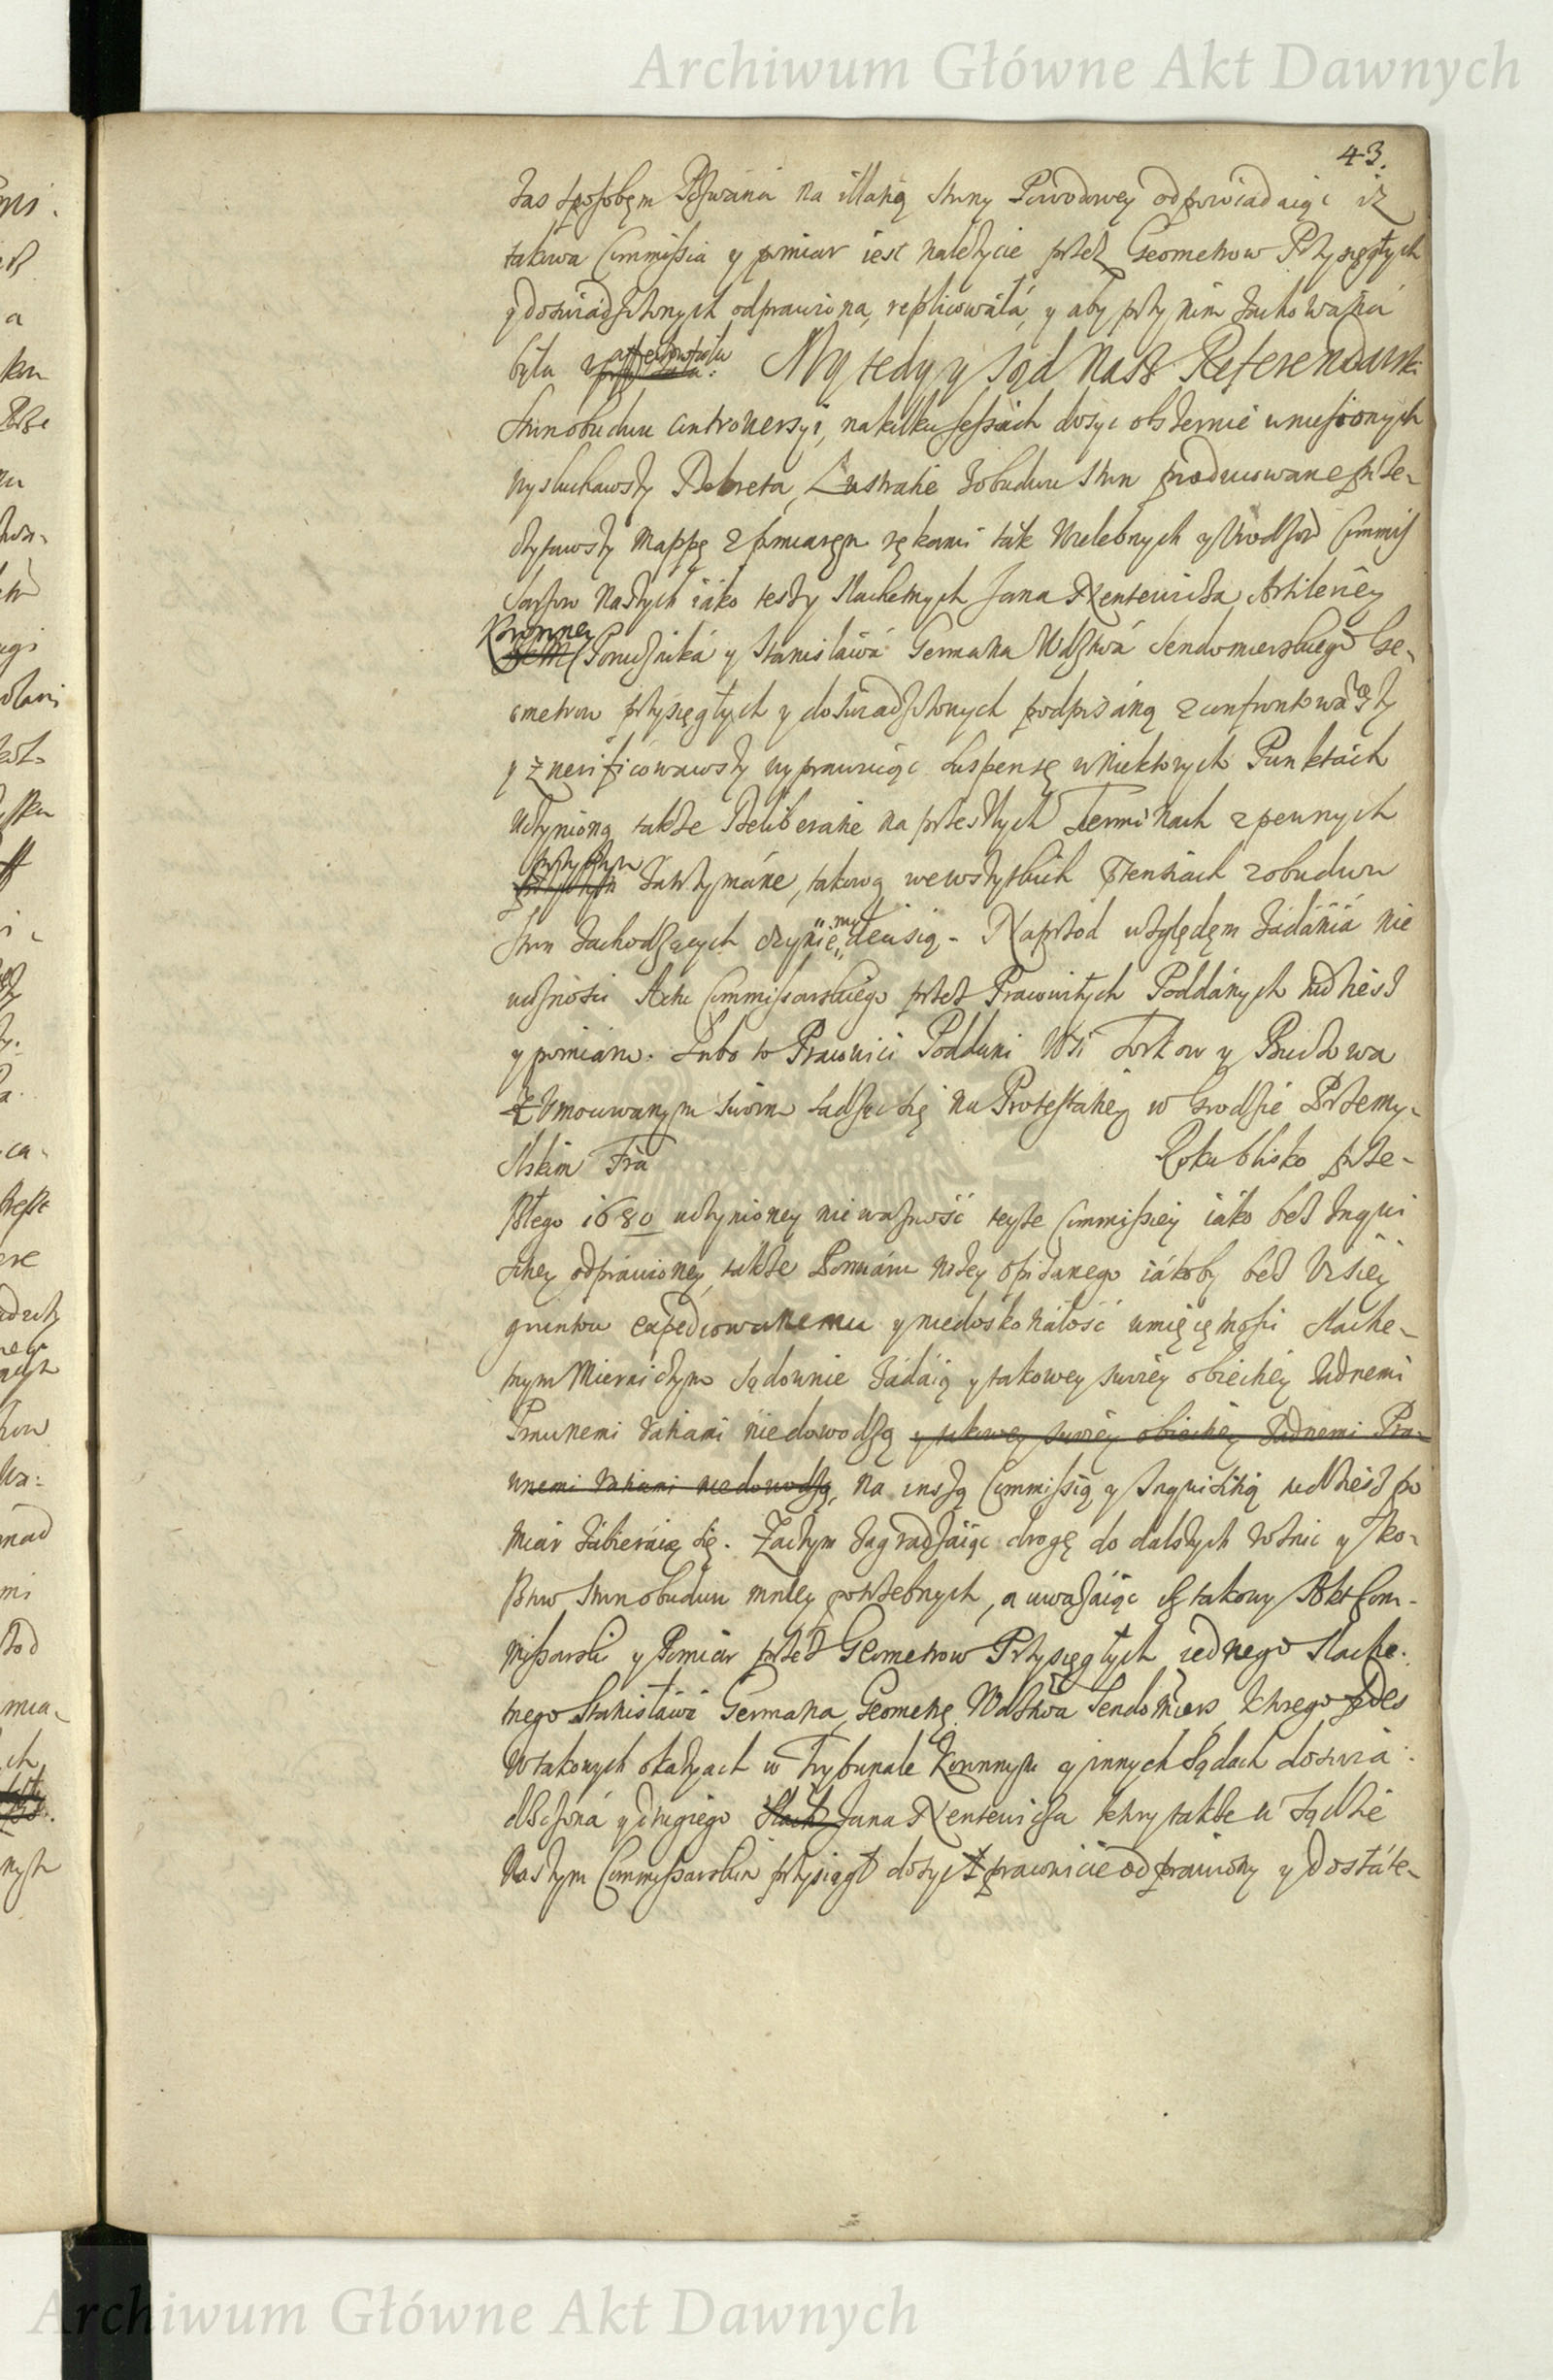 Archiwum Główne Akt Dawnych
43.
zas sposobem Pozwana na illatię strony Powodowey odpowiadaiąc iż
takowa Commissia y pomiar iest należycie przez Geometrow Przysięgłych
y doswiadszonych odprawiona, replicowała, y aby przy nim zachowana
była affectowała: My tedy y Sąd nasz Referendarski
Stron obudwu controversyi, na kilku sessiach dosyc obszernie wniesionych
wysłuchawszy Dekreta, Lustratie z obudwu stron producowane prze-
czytawszy Mappę z pomiarem rękami tak Wielebnych y Urodzon Commis
sarzow naszych iako tesz Slachetnych Jana Xentewicza Artileriey
Koronney Poruznika y Stanisława Germana Wdztwa Sendomierskiego Ge-
ometrow przysięgłych y doswiadszonych podpisaną zconfrontowawszy
y zverificowawszy wyprawuiąc suspensę w niektorych Punktach
uczynioną także Deliberatie na przeszłych Terminach z pewnych
przyczyn zatrzymane, takową we wszytkich ptensiach z obudwu
stron zachodzących czyniemy decisią - Naprzod względem zadania nie
waznosci Actu Commissarskiego przez Prawuiących Poddanych tudziesz
y pomiaru. Lubo to Prawuici Poddani Wsi Torkow y Buczowa
z Umocowanym swoim sadząc się na Protestatiey w Grodzie Przemy-
slskim Fra Roku blisko prze-
szłego 1680 uczynioney niewazność teyze Commissiey iako bez Inqui
sitiey odprawioney, także Pomiaru niżey opisanego iakoby bez Wisiey
gruntow expediowanemu y niedoskonałość umięiętnosci Slache-
tnym Mierniczym sądownie zadaią y takowey swoiey obiectiey żadnemi
Prawnemi ratiami niedowodzą y takowey swoiey obiectiey żadnemi Pra-
wnemi ratiami niedowodzą, na inszą Commissią y Inquisitią tudziesz po
miar zabieraią się. Zaczym zagradzaiąc drogę do dalszych rożnic y ko-
sztow stron obudwu mniey potrzebnych, a uważaiąc iż takowy Akt Com-
missarski y Pomiar przez Geometrow Przysięgłych iednego Slache-
tnego Stanisława Germana, Geometrę Wdztwa Sendomiers, ktorego
w takowych okazyach w Trybunale Koronnym y innych Sądach doswia-
dsczona y drugiego Slach Jana Xentewicza ktory także w Sądzie
Naszym Commissarskim przysiągł dosyc prawnie odprawiony y dostate-
Archiwum Główne Akt Dawnych